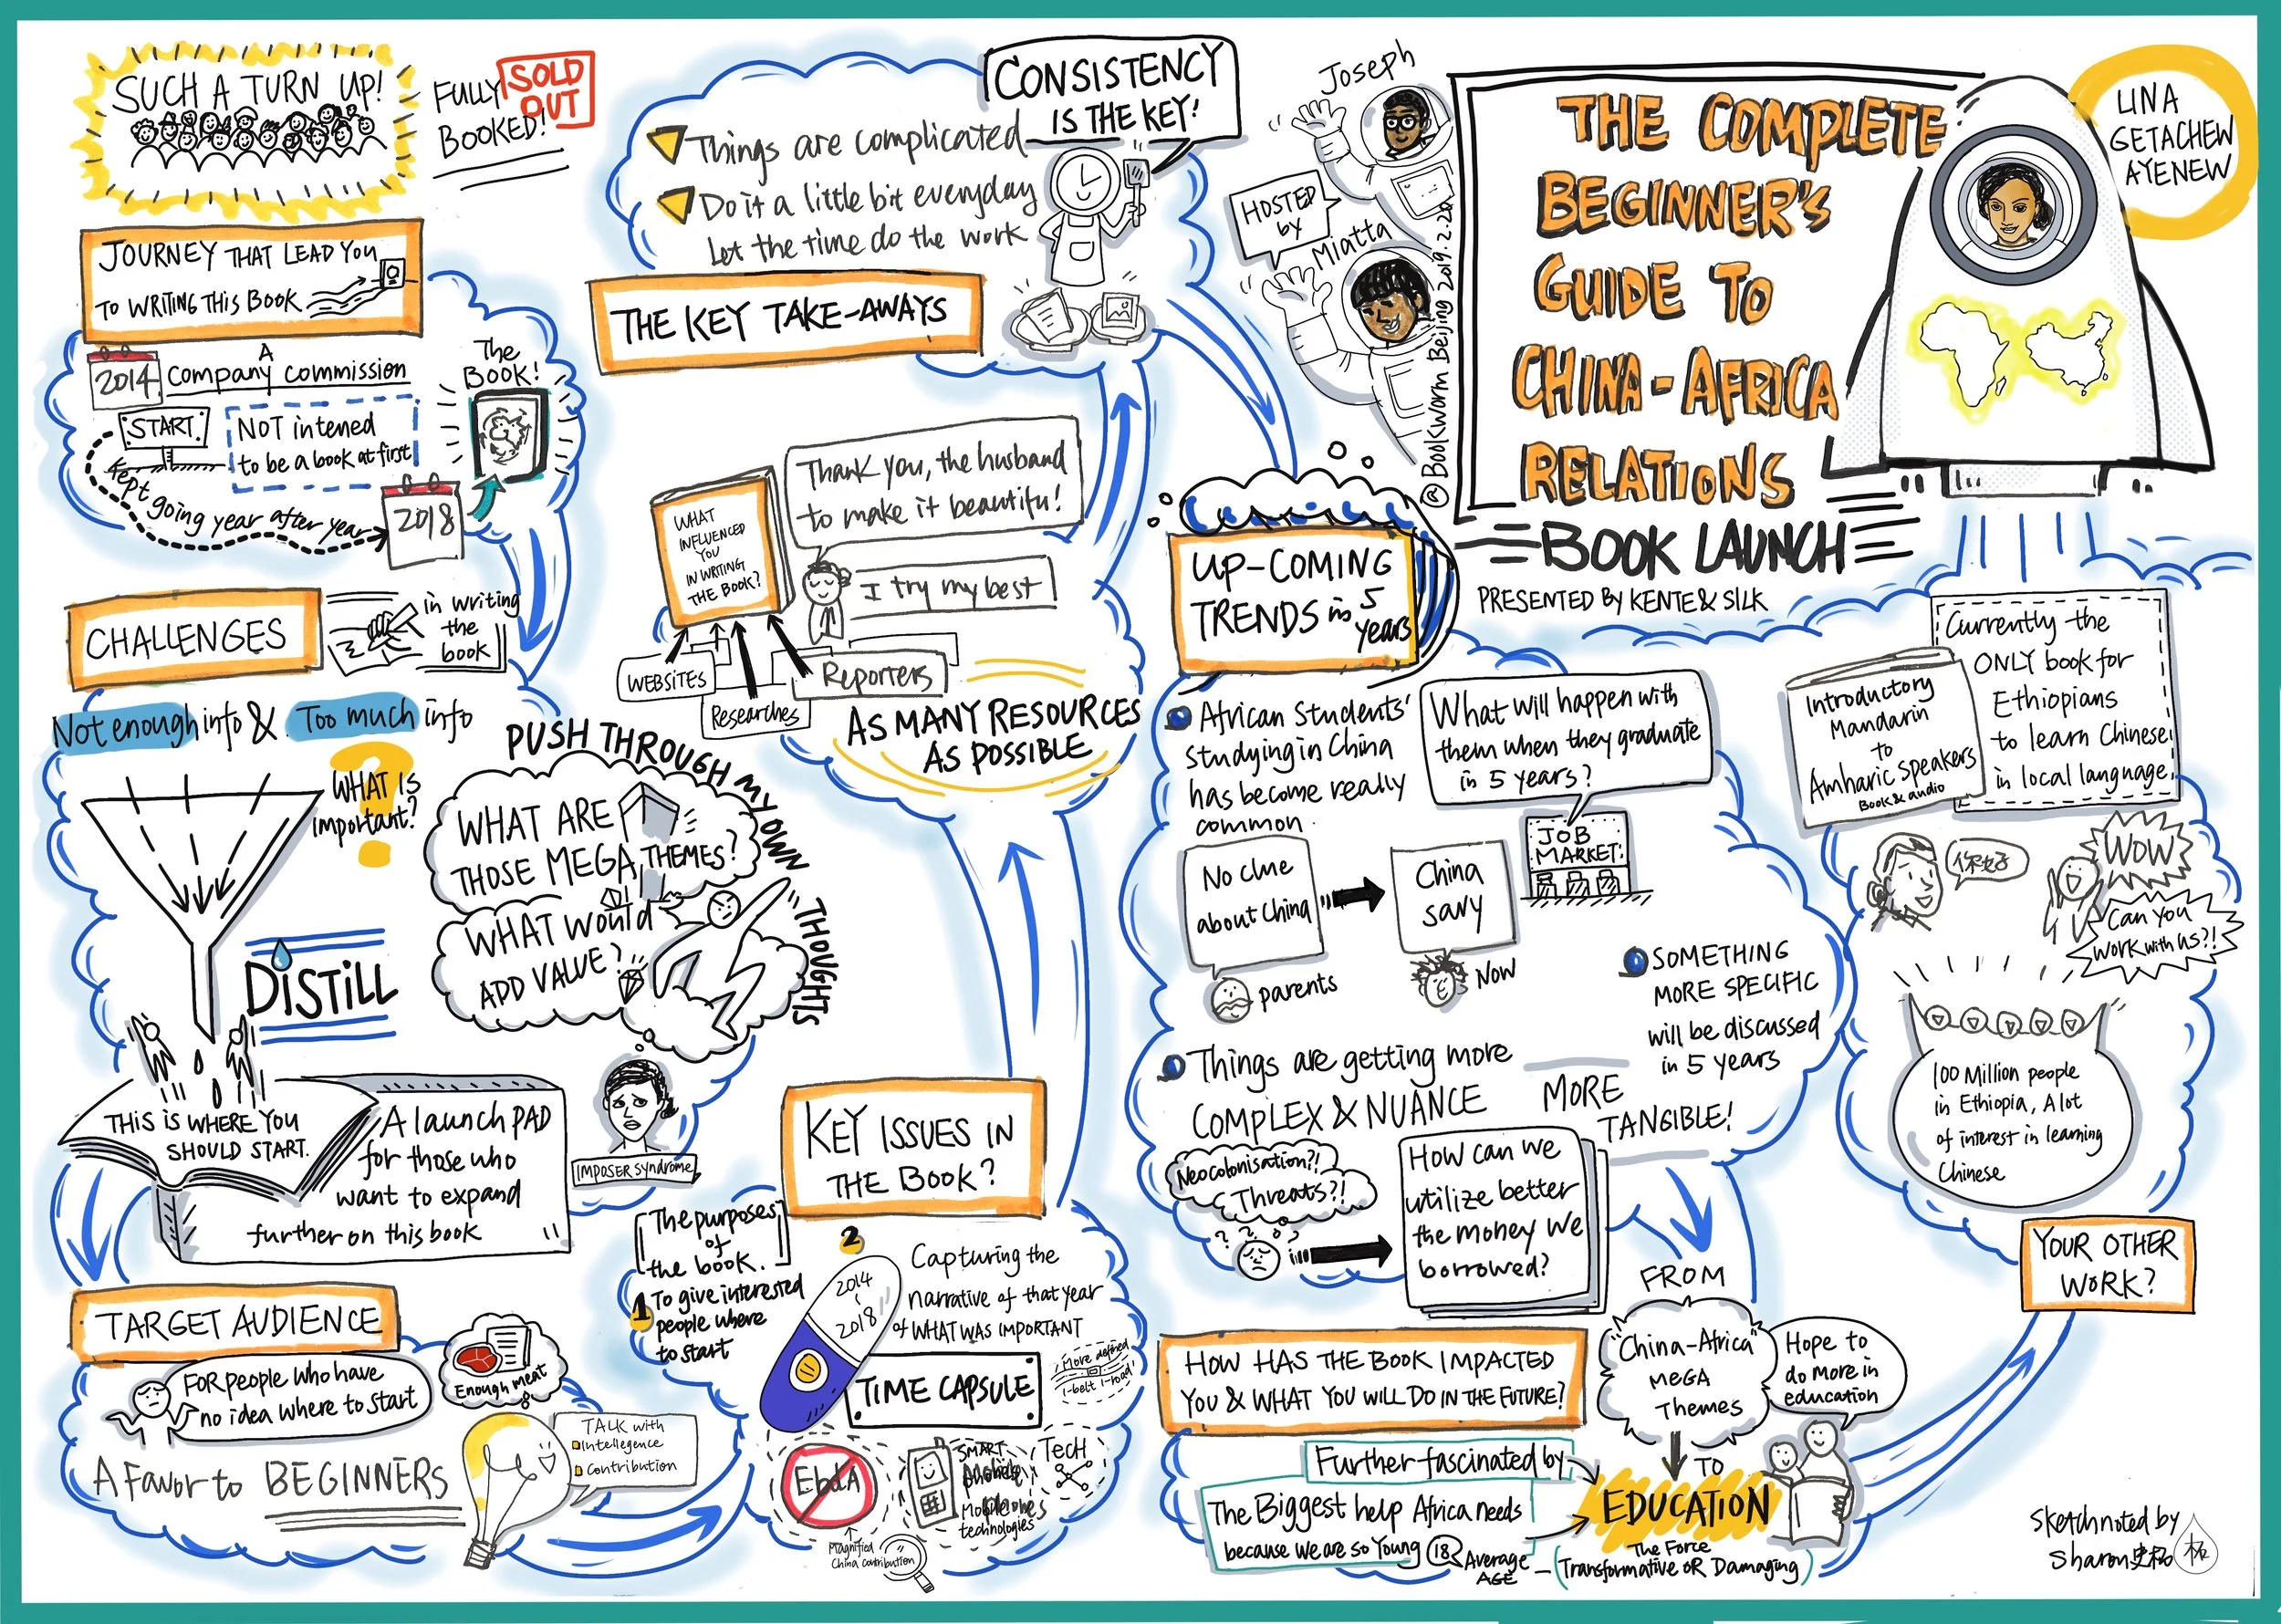 SUCH A TURN UP!
FULLY
BOOKED!
SOLD
OUT
JOURNEY THAT LEAD YOU
TO WRITING THIS BOOK
2014
A
COMPANY COMMISSION
START
NOT intened
to be a book at first
kept going year after year
2018
The
BOOK!
CHALLENGES
in writing
the
book
Not enough info & Too much info
WHAT IS
important?
?
DISTILL
PUSH THROUGH MY OWN THOUGHTS
WHAT ARE
THOSE MEGA THEMES?
WHAT would
ADD VALUE?
IMPOSER syndrome
THIS IS WHERE YOU
SHOULD START.
A launch PAD
for those who
want to expand
further on this book
TARGET AUDIENCE
FOR people who have
no idea where to start
Enough meat
A Favor to BEGINNERS
TALK with
Intellegence
Contribution
KEY ISSUES IN
THE BOOK?
The purposes
of
the book.
1 To give interested
people where
to start
2
2014
2018
Capturing the
narrative of that year
of WHAT WAS IMPORTANT
TIME CAPSULE
More defined
1-belt 1-road
EbdA
Magnified
China contribution
SMART
Mobile
technologies
TECH
WHAT
INFLUENCED
YOU
IN WRITING
THE BOOK?
Thank you, the husband
to make it beautiful!
I try my best
WEBSITES
Researches
Reporters
AS MANY RESOURCES
AS POSSIBLE
THE KEY TAKE-AWAYS
Things are complicated
Do it a little bit everyday
Let the time do the work
CONSISTENCY
IS THE KEY!
Joseph
HOSTED
by
Miatta
@Bookworm Beijing 2019.2.20
THE COMPLETE
BEGINNER'S
GUIDE TO
CHINA-AFRICA
RELATIONS
BOOK LAUNCH
PRESENTED BY KENTE & SILK
LINA
GETACHEW
AYENEW
UP-COMING
TRENDS in 5
years
African Students'
studying in China
has become really
common.
What will happen with
them when they graduate
in 5 years?
JOB
MARKET
No clue
about China
parents
China
savy
Now
SOMETHING
MORE SPECIFIC
will be discussed
in 5 years
Things are getting more
COMPLEX & NUANCE
MORE
TANGIBLE!
Neocolonisation?!
Threats?!
How can we
utilize better
the money we
borrowed?
HOW HAS THE BOOK IMPACTED
YOU & WHAT YOU WILL DO IN THE FUTURE?
FROM
"China-Africa"
MEGA
Themes
TO
EDUCATION
Hope to
do more in
education
Further fascinated by
The Biggest help Africa needs
because we are so Young 18 Average
AGE
The Force
Transformative OR Damaging
YOUR OTHER
WORK?
Introductory
Mandarin
to
Amharic speakers
Book & audio
Currently the
ONLY book for
Ethiopians
to learn Chinese
in local language.
你好
WOW
Can you
work with us?!
100 Million people
in Ethiopia, A lot
of interest in learning
Chinese
Sketchnoted by
Sharon史杨